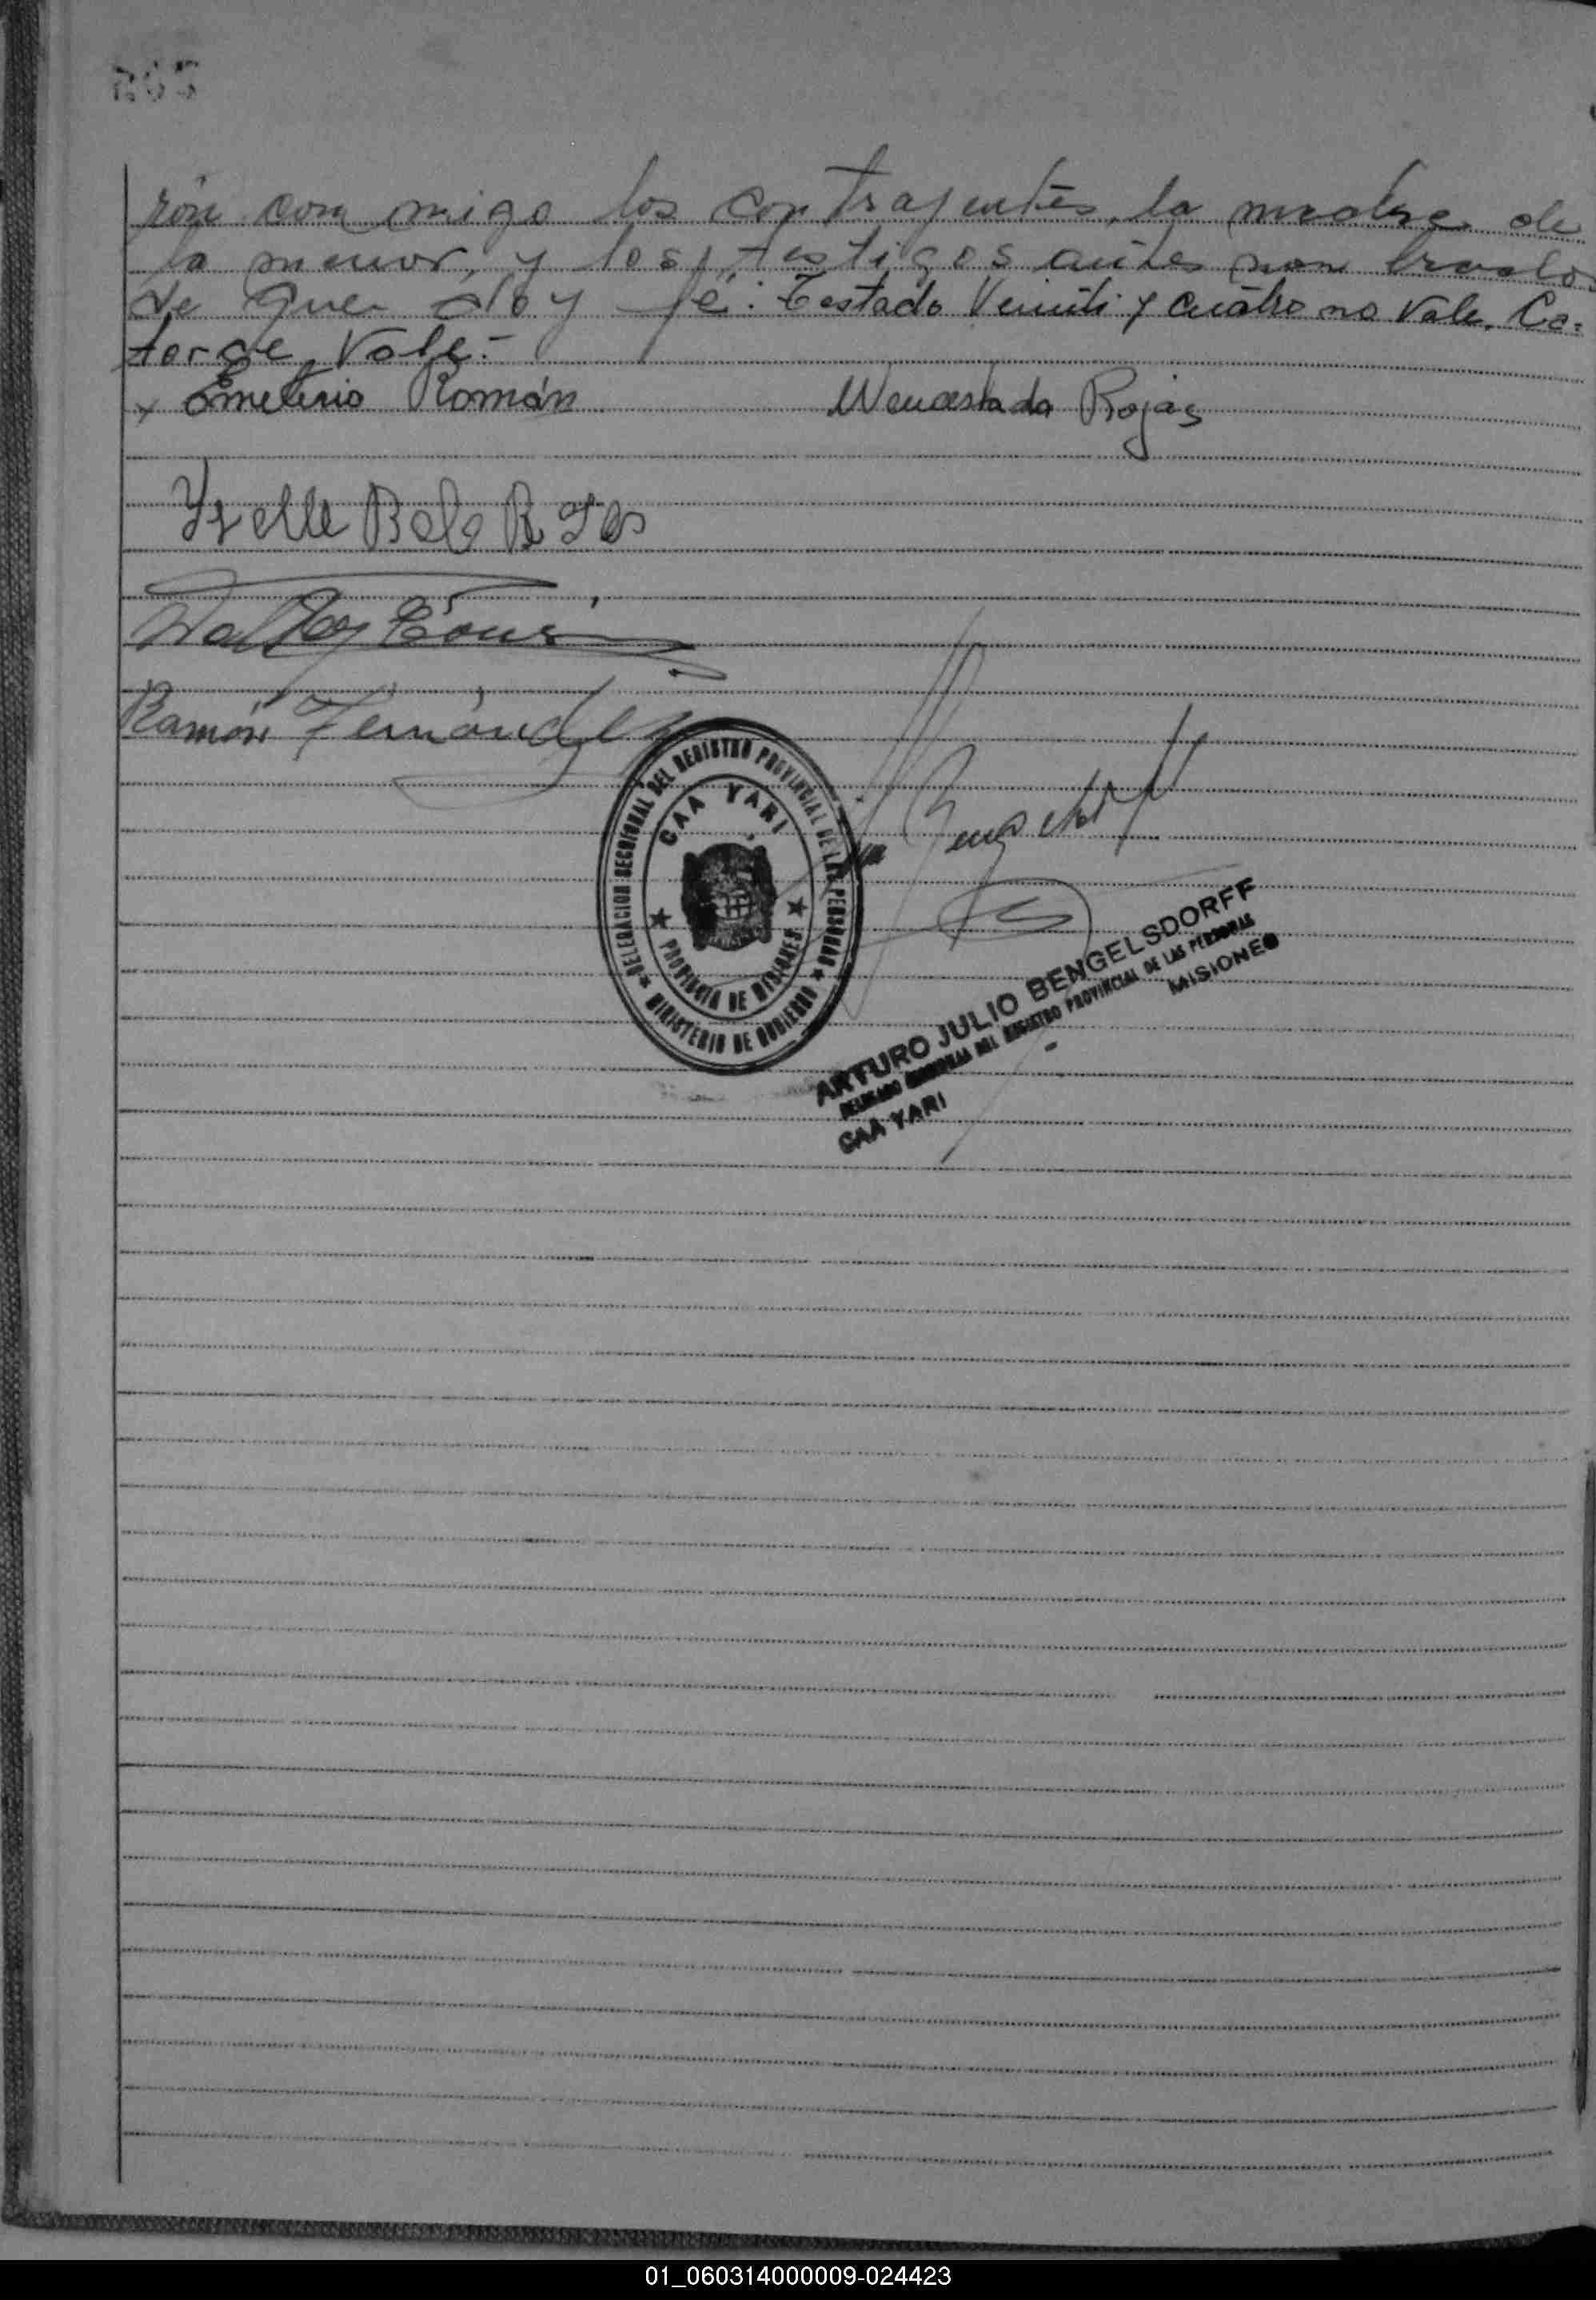 ron con migo los contrayentes, la madre de
la menor, y los testigos antes nom brados
de que doy fé: Testado Veinti y cuatro no Vale, Ca=
torce, Vale.-
x Emeterio Román Wenceslada Rojas
Ramón Fernández
DELEGACION SECCIONAL DEL REGISTRO PROVINCIAL DE LAS PERSONAS
MINISTERIO DE GOBIERNO
CAA YARI
PROVINCIA DE MISIONES
ARTURO JULIO BENGELSDORFF
DELEGADO SECCIONAL DEL REGISTRO PROVINCIAL DE LAS PERSONAS
CAA YARI MISIONES
01_060314000009-024423